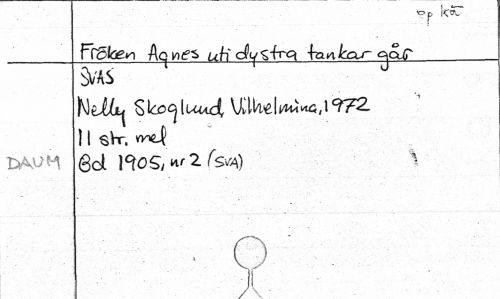 ep kä
Fröken Agnes uti dystra tankar går
SVAS
Nelly Skoglund, Vilhelmina, 1972
11 str. mel
DAUM Bd 1905, nr 2 (SVA)